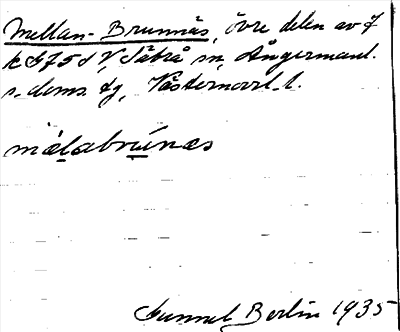 Mellan-Brunnäs, övre delen av 7
k G 75 d V, Säbrå sn, Ångermanl.
s. doms. tg, Västernorrl. l.
mälabrúnæs
Gunnel Berlin 1935